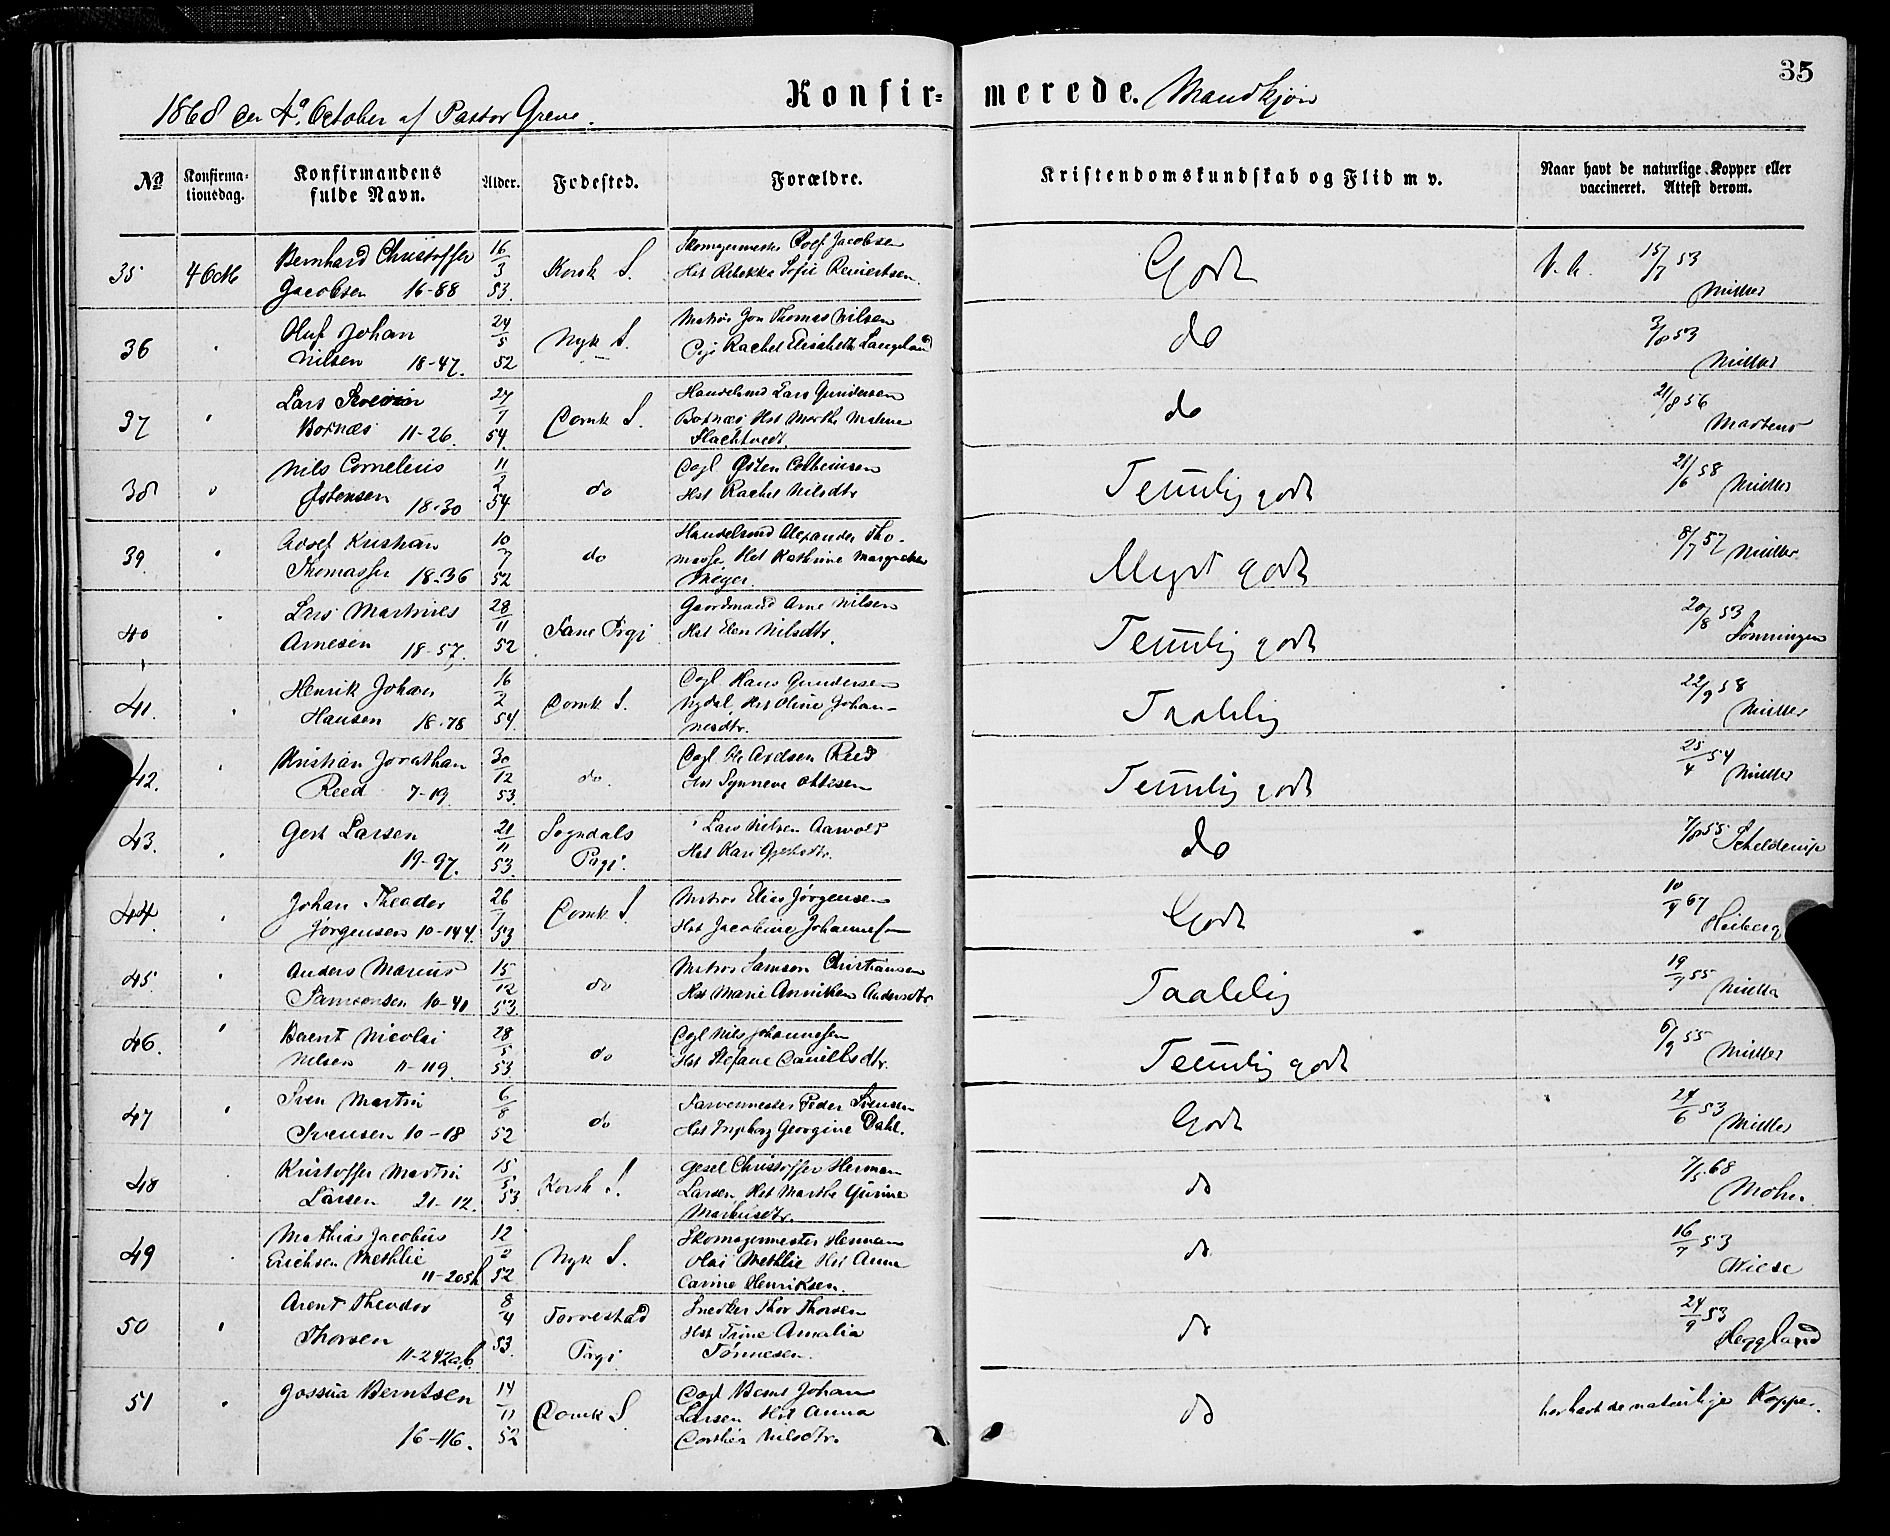 35
Konfir= merede. Mandkjøn
1868 den 4de October af Pastor Greve.
No Konfirma-tionsdag. Konfirmandens fulde Navn. Alder. Fødested. Forældre. Kristendomskundskab og Flid m v. Naar havt de naturlige Kopper eller vaccineret. Attest derom.
35 4 Octb Bernhard Christoffer 16/3 Korsk S. Skomagermester Jacobsen Godt V. A. 15/7 53
Jacobsen 16-88 53. Hst Rebekka Sofie Reinertsen Müller
36 " Oluf Johan 24/5 Nyk S. Matros Jon Thomas Nilsen do 3/8 53
Nilsen 18-47. 52 Pige Rachel Elisabeth Langeland Müller
37 " Lars Severin 27/7 Domk S. Handelsmd Lars Gundersen do 21/8 56
Bornæs 11-26. 54. Bornæs Hst Marthe Malene Martens
Slachtvedt.
38 " Nils Cornelius 11/2 do Dagl Østen Colbeinsen Temlig godt 21/6 58 Müller
Østensen 18-30 54 Hst Rachel Nilsdtr
39. " Adolf Kristian 10/7 do Handelsmd Alexander Tho- Meget godt 8/7 57 Müller
Thomassen 18-36 52 masse Hst Kathrine Margrethe
Meyer.
40 " Lars Martinus 28/11 Fane Prgj Gaardmand Arne Nilsen Temlig godt 20/8 53
Arnesen 18-57. 52 Hst Elen Nilsdtr. Sonningen
41. " Henrik Johan 16/2 Domk S. Dagl Hans Gundersen Taalelig 22/9 58
Hansen 18-78 54. Nydal Hst Oline Johan- Müller
nesdtr.
42. " Kristian Jonathan 30/12 do. Dagl Ole Reed Temlig godt 25/4 54
Reed 7-19. 53. Hst Synneve Ottesen Müller
43. " Gert Larsen 21/11 Sogndals " Lars Nilsen Aarvold do 7/8 55 Schelderup
19-97. 53. Prgj. Hst Kari
44. " Johan Theodor 26/7 Domk S. Matros Elias Jørgensen Godt 10/4 67
Jørgensen 10-144. 53 Hst Jacobine Johannesen Heiberg
45. " Anders Marius 15/12 do Matros Samson Christiansen Taalelig 19/9 55
Samsonsen 10-41 53. Hst Marie Anniken Andersdtr Müller
46. " Berent Nicolai 28/5 do Dagl Nils Johannesen Temlig godt 6/9 55
Nilsen 11-119. 53 Hst Stefane Danielsdtr. Müller
47 " Sven Martin 6/8 do Farvermester Peder Svensen Godt 24/6 53
Svensen 10-18 52 Hst Ingborg Georgine Dahl. Müller
48 Kristoffer Martin 15/5 Korsk S. Gesel Christoffer Herman do 7/5 68
Larsen 21-12. 53 Larsen, Hst Marthe Gurine Mohn.
Markusdtr.
49 Mathias Jacobus 12/2 Nyk S. Skomagermester Herman do 16/7 53
Erichsen Methlie 52 Olai Methlie Hst Anne Wiese
11-205b Carine Henriksen.
50 " Arent Theodor 8/4 Torvestad Snedker Thor Thorsen do 24/9 53
Thorsen 53. Prgj. Hst Trine Amalia Heggland
11-242a,b. Tønnesen.
51 " Jossua Berntsen 14/11 Domk S. Dagl Bernt Johan do har havt de naturlige Kopper.
16-116. 52 Larsen Hst Anna
Dorthea Nilsdtr.